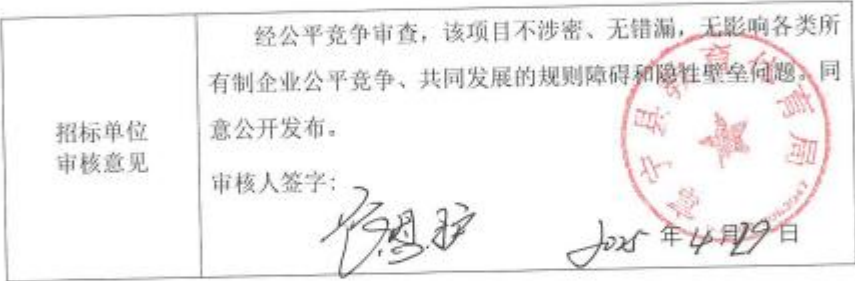 招标单位
审核意见
经公平竞争审查，该项目不涉密、无错漏，无影响各类所
有制企业公平竞争、共同发展的规则障碍和隐性壁垒问题。同
意公开发布。
审核人签字：
2025 年 4 月 29 日